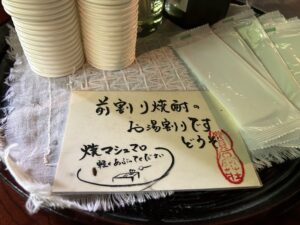 前割り焼酎の
お湯割りです
どうぞ
焼マシュマロ
軽くあぶってください